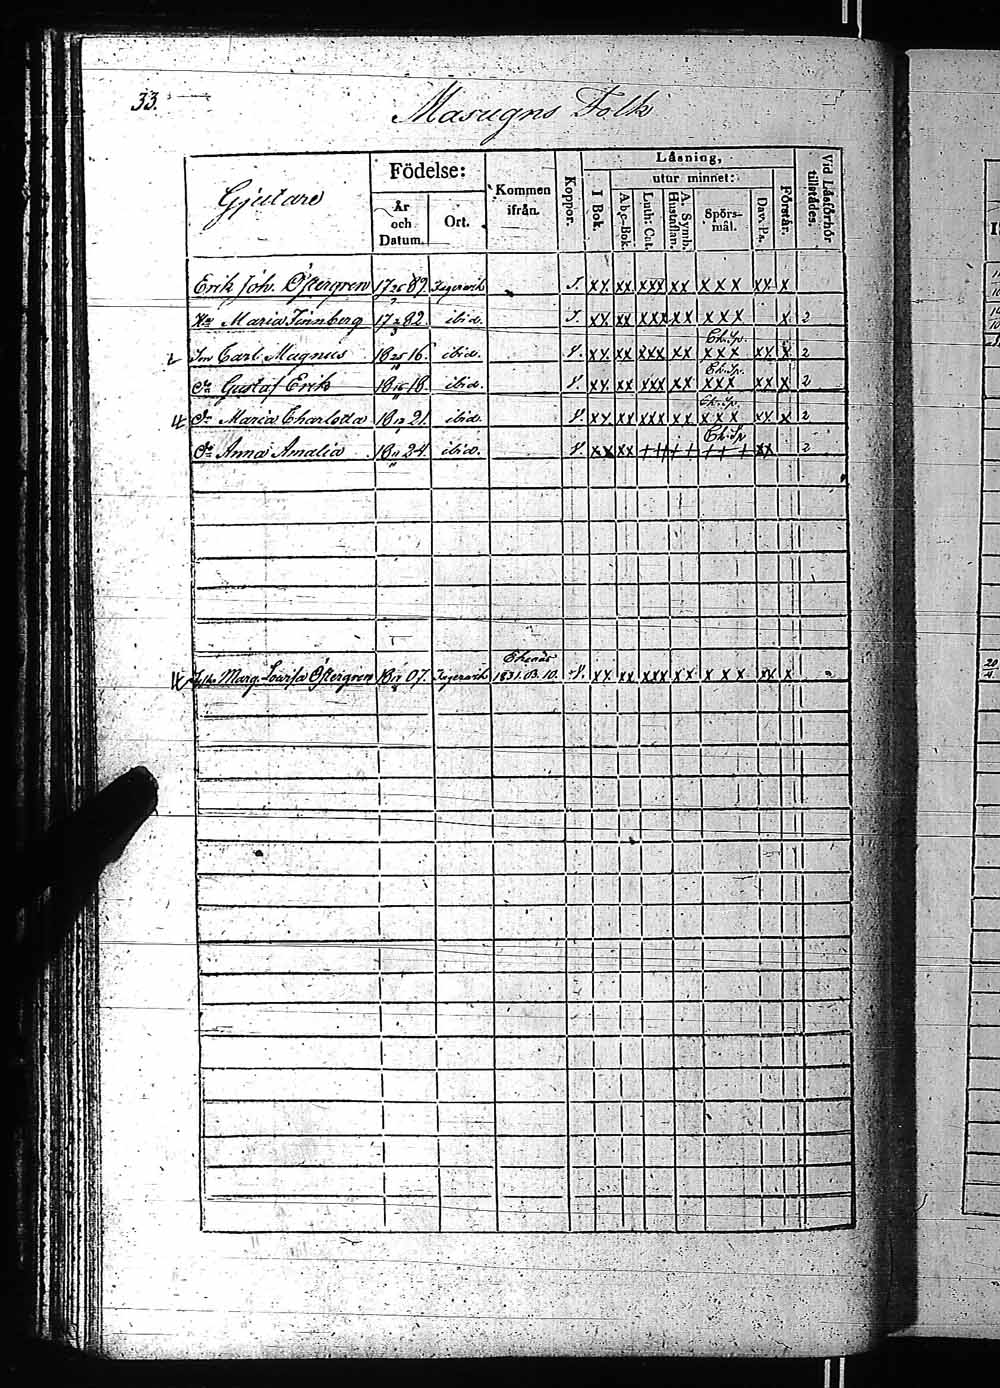 33.
Masugns Folk
Gjutare
Födelse:
År och Datum.
Ort.
Kommen ifrån.
Koppor.
Läsning,
I Bok.
utur minnet:
Abc-Bok.
Luth. Cat.
A. Symb. Hustaflan.
Spörs-mål.
Dav. Ps.
Förstår.
Vid Läsförhör tillstädes.
Erik Joh. Östergren 17 89. Fagervik J. xx xx xxx xx xxx xx x
Maria Finnberg 17 82. ibid. J. xx xx xxx xx xxx x 2
Ch. Sp.
Carl Magnus 18 16. ibid. V. xx xx xxx xx xxx xx x 2
Ch. Sp.
Gustaf Erik 18 18. ibid. V. xx xx xxx xx xxx xx x 2
Ch. Sp.
Maria Charlotta 18 21. ibid. V. xx xx xxx xx xxx xx x 2
Ch. Sp
Anna Amalia 18 24. ibid. V. xx xx +++ ++ +++ xx 2
Marg. Lovisa Östergren 18 07. Fagervik 1831.03.10. V. xx xx xxx xx xxx xx x